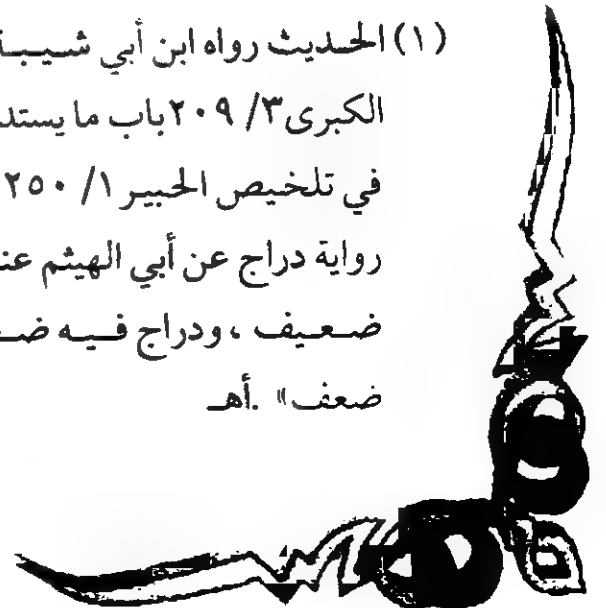 (١) الحديث رواه ابن أبي شيبة
الكبرى ٣/ ٢٠٩ باب ما يستد
في تلخيص الحبير ١/ ٢٥٠
رواية دراج عن أبي الهيثم عن
ضعيف ، ودراج فيه ضع
ضعف» .أهـ